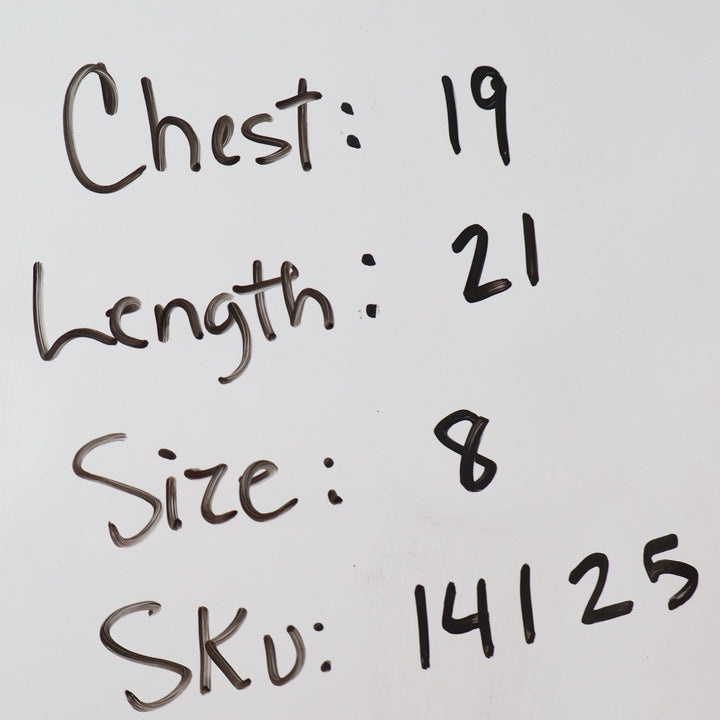 Chest: 19
Length: 21
Size: 8
SKU: 14125